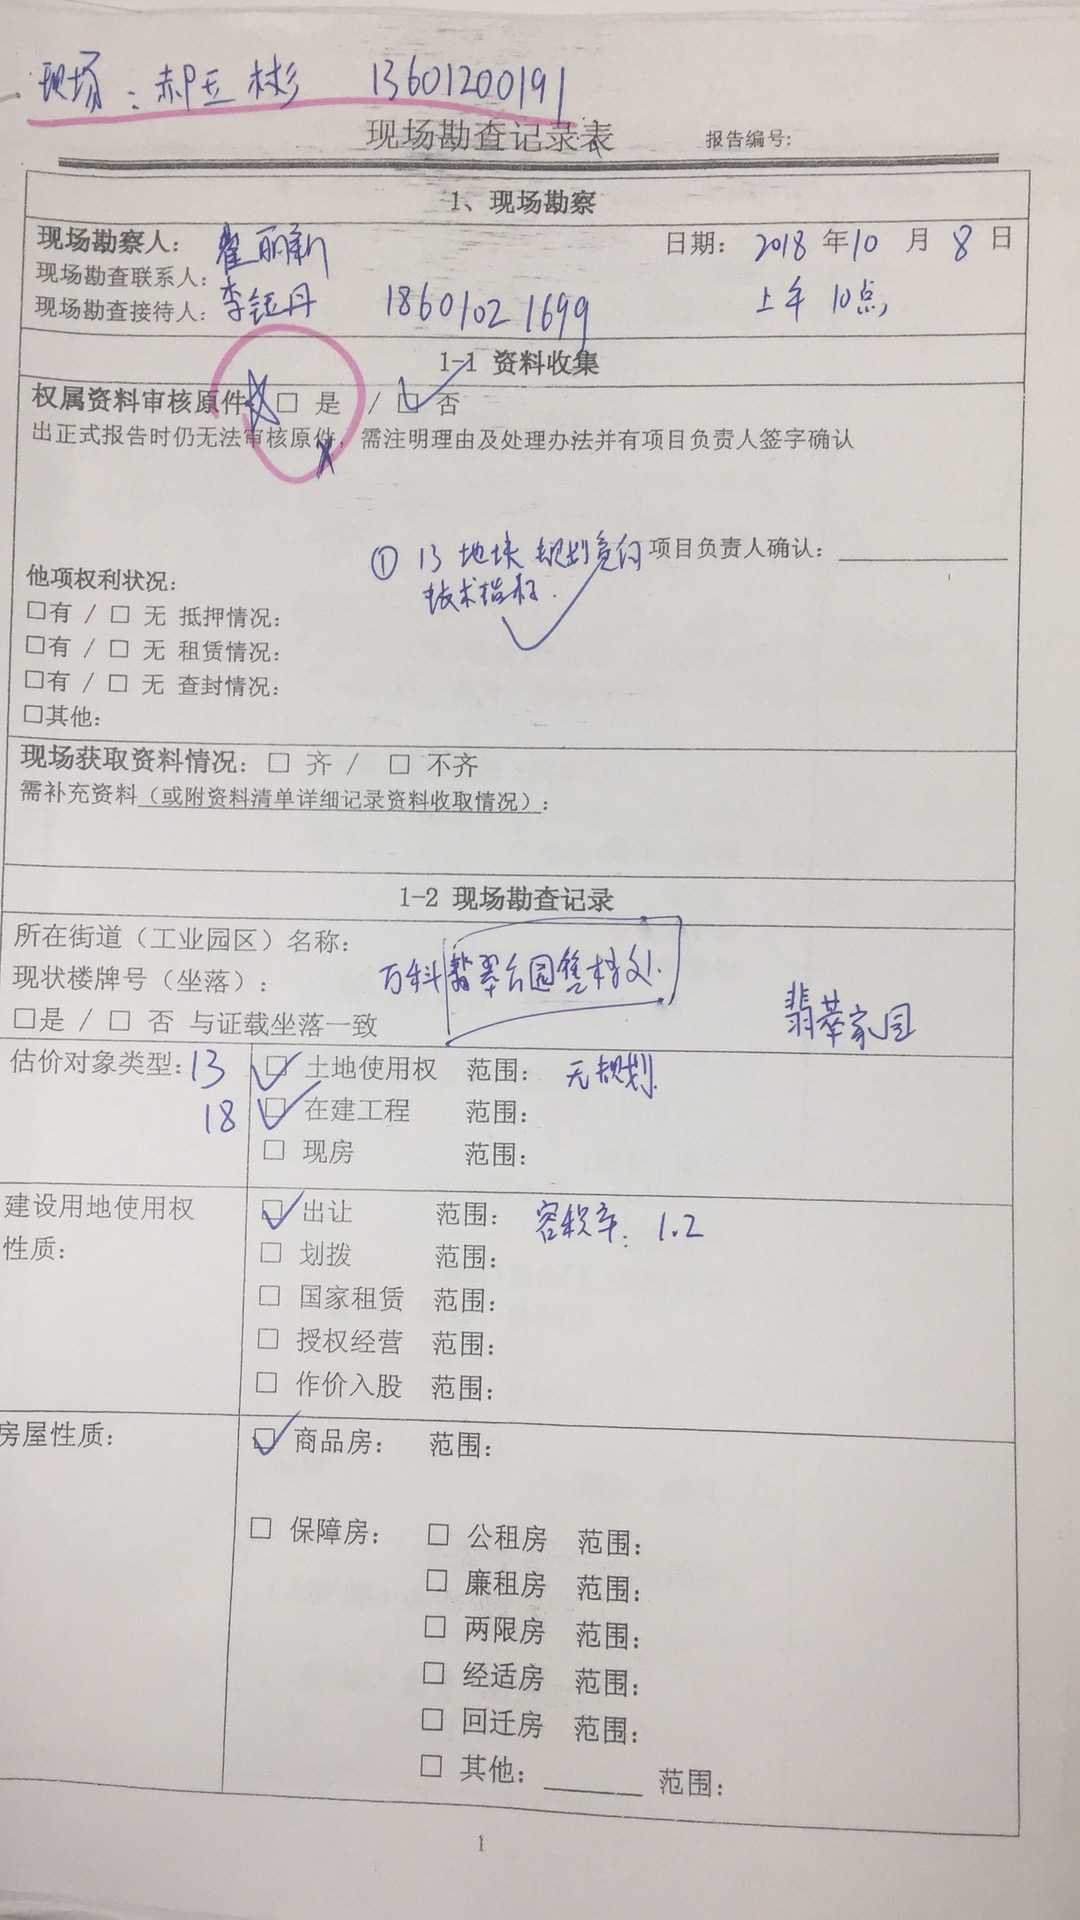 现场：郝玉彬 13601200191
现场勘查记录表 报告编号:
1、现场勘察
现场勘察人： 翟丽新 日期： 2018 年 10 月 8 日
现场勘查联系人：
现场勘查接待人： 李钰丹 18601021699 上午 10点,
1-1 资料收集
权属资料审核原件 □ 是 / ☑ 否
出正式报告时仍无法审核原件，需注明理由及处理办法并有项目负责人签字确认
① 13 地块 规划 项目负责人确认：
技术指标.
他项权利状况：
□有 / □ 无 抵押情况：
□有 / □ 无 租赁情况：
□有 / □ 无 查封情况：
□其他：
现场获取资料情况：□ 齐 / □ 不齐
需补充资料（或附资料清单详细记录资料收取情况）：
1-2 现场勘查记录
所在街道（工业园区）名称：
现状楼牌号（坐落）： 万科翡翠公园售楼处.
□是 / □ 否 与证载坐落一致 翡翠家园
估价对象类型： 13 ☑ 土地使用权 范围： 无规划.
18 ☑ 在建工程 范围：
□ 现房 范围：
建设用地使用权性质： ☑ 出让 范围： 容积率：1.2
□ 划拨 范围：
□ 国家租赁 范围：
□ 授权经营 范围：
□ 作价入股 范围：
房屋性质： ☑ 商品房： 范围：
□ 保障房： □ 公租房 范围：
□ 廉租房 范围：
□ 两限房 范围：
□ 经适房 范围：
□ 回迁房 范围：
□ 其他：______ 范围：
1